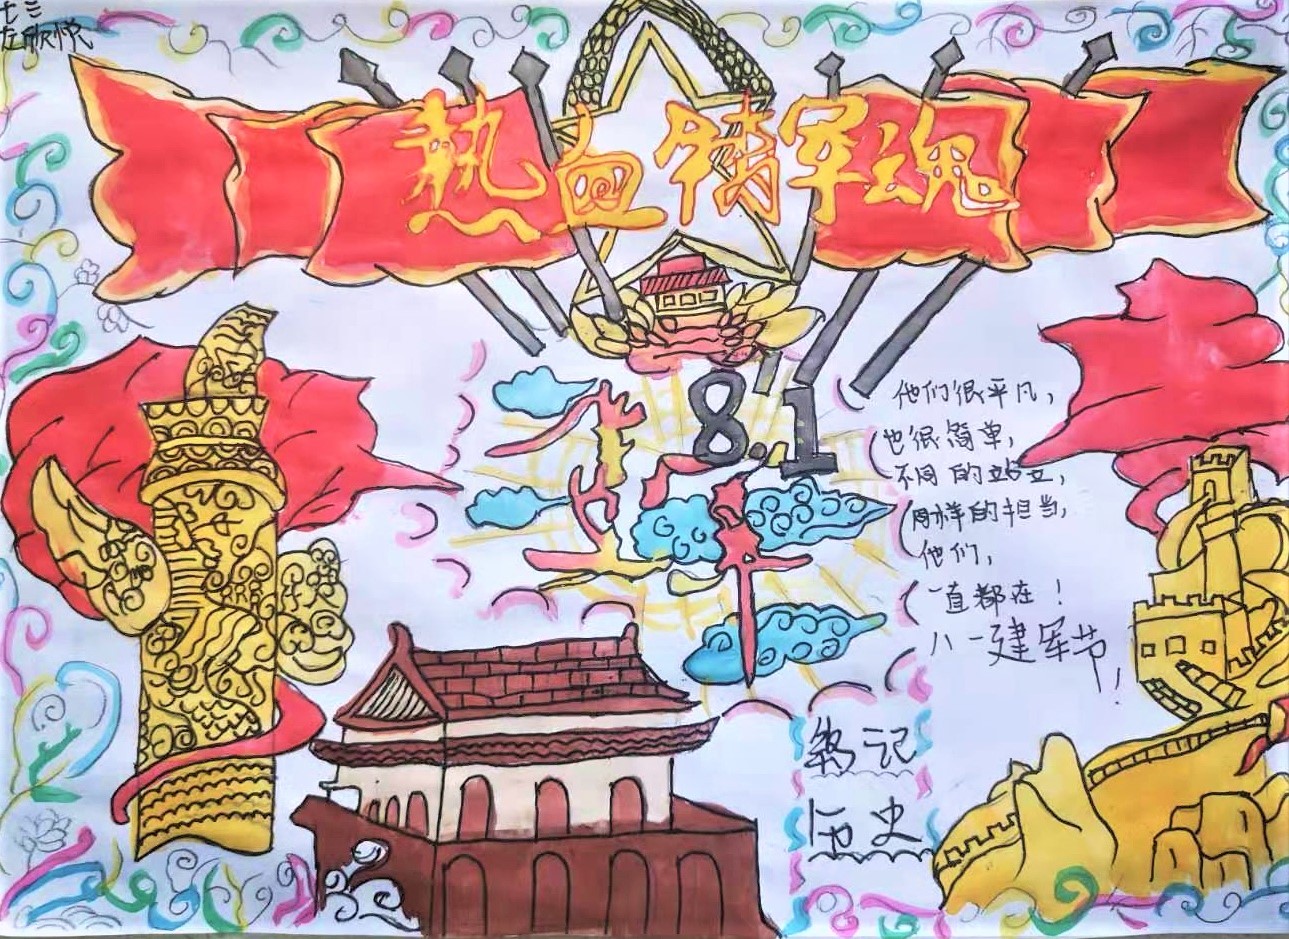 七三
熱血铸军魂
8.1
他们很平凡，
也很简单，
不同的站立，
同样的担当，
他们，
一直都在！
八一建军节！
铭记
历史